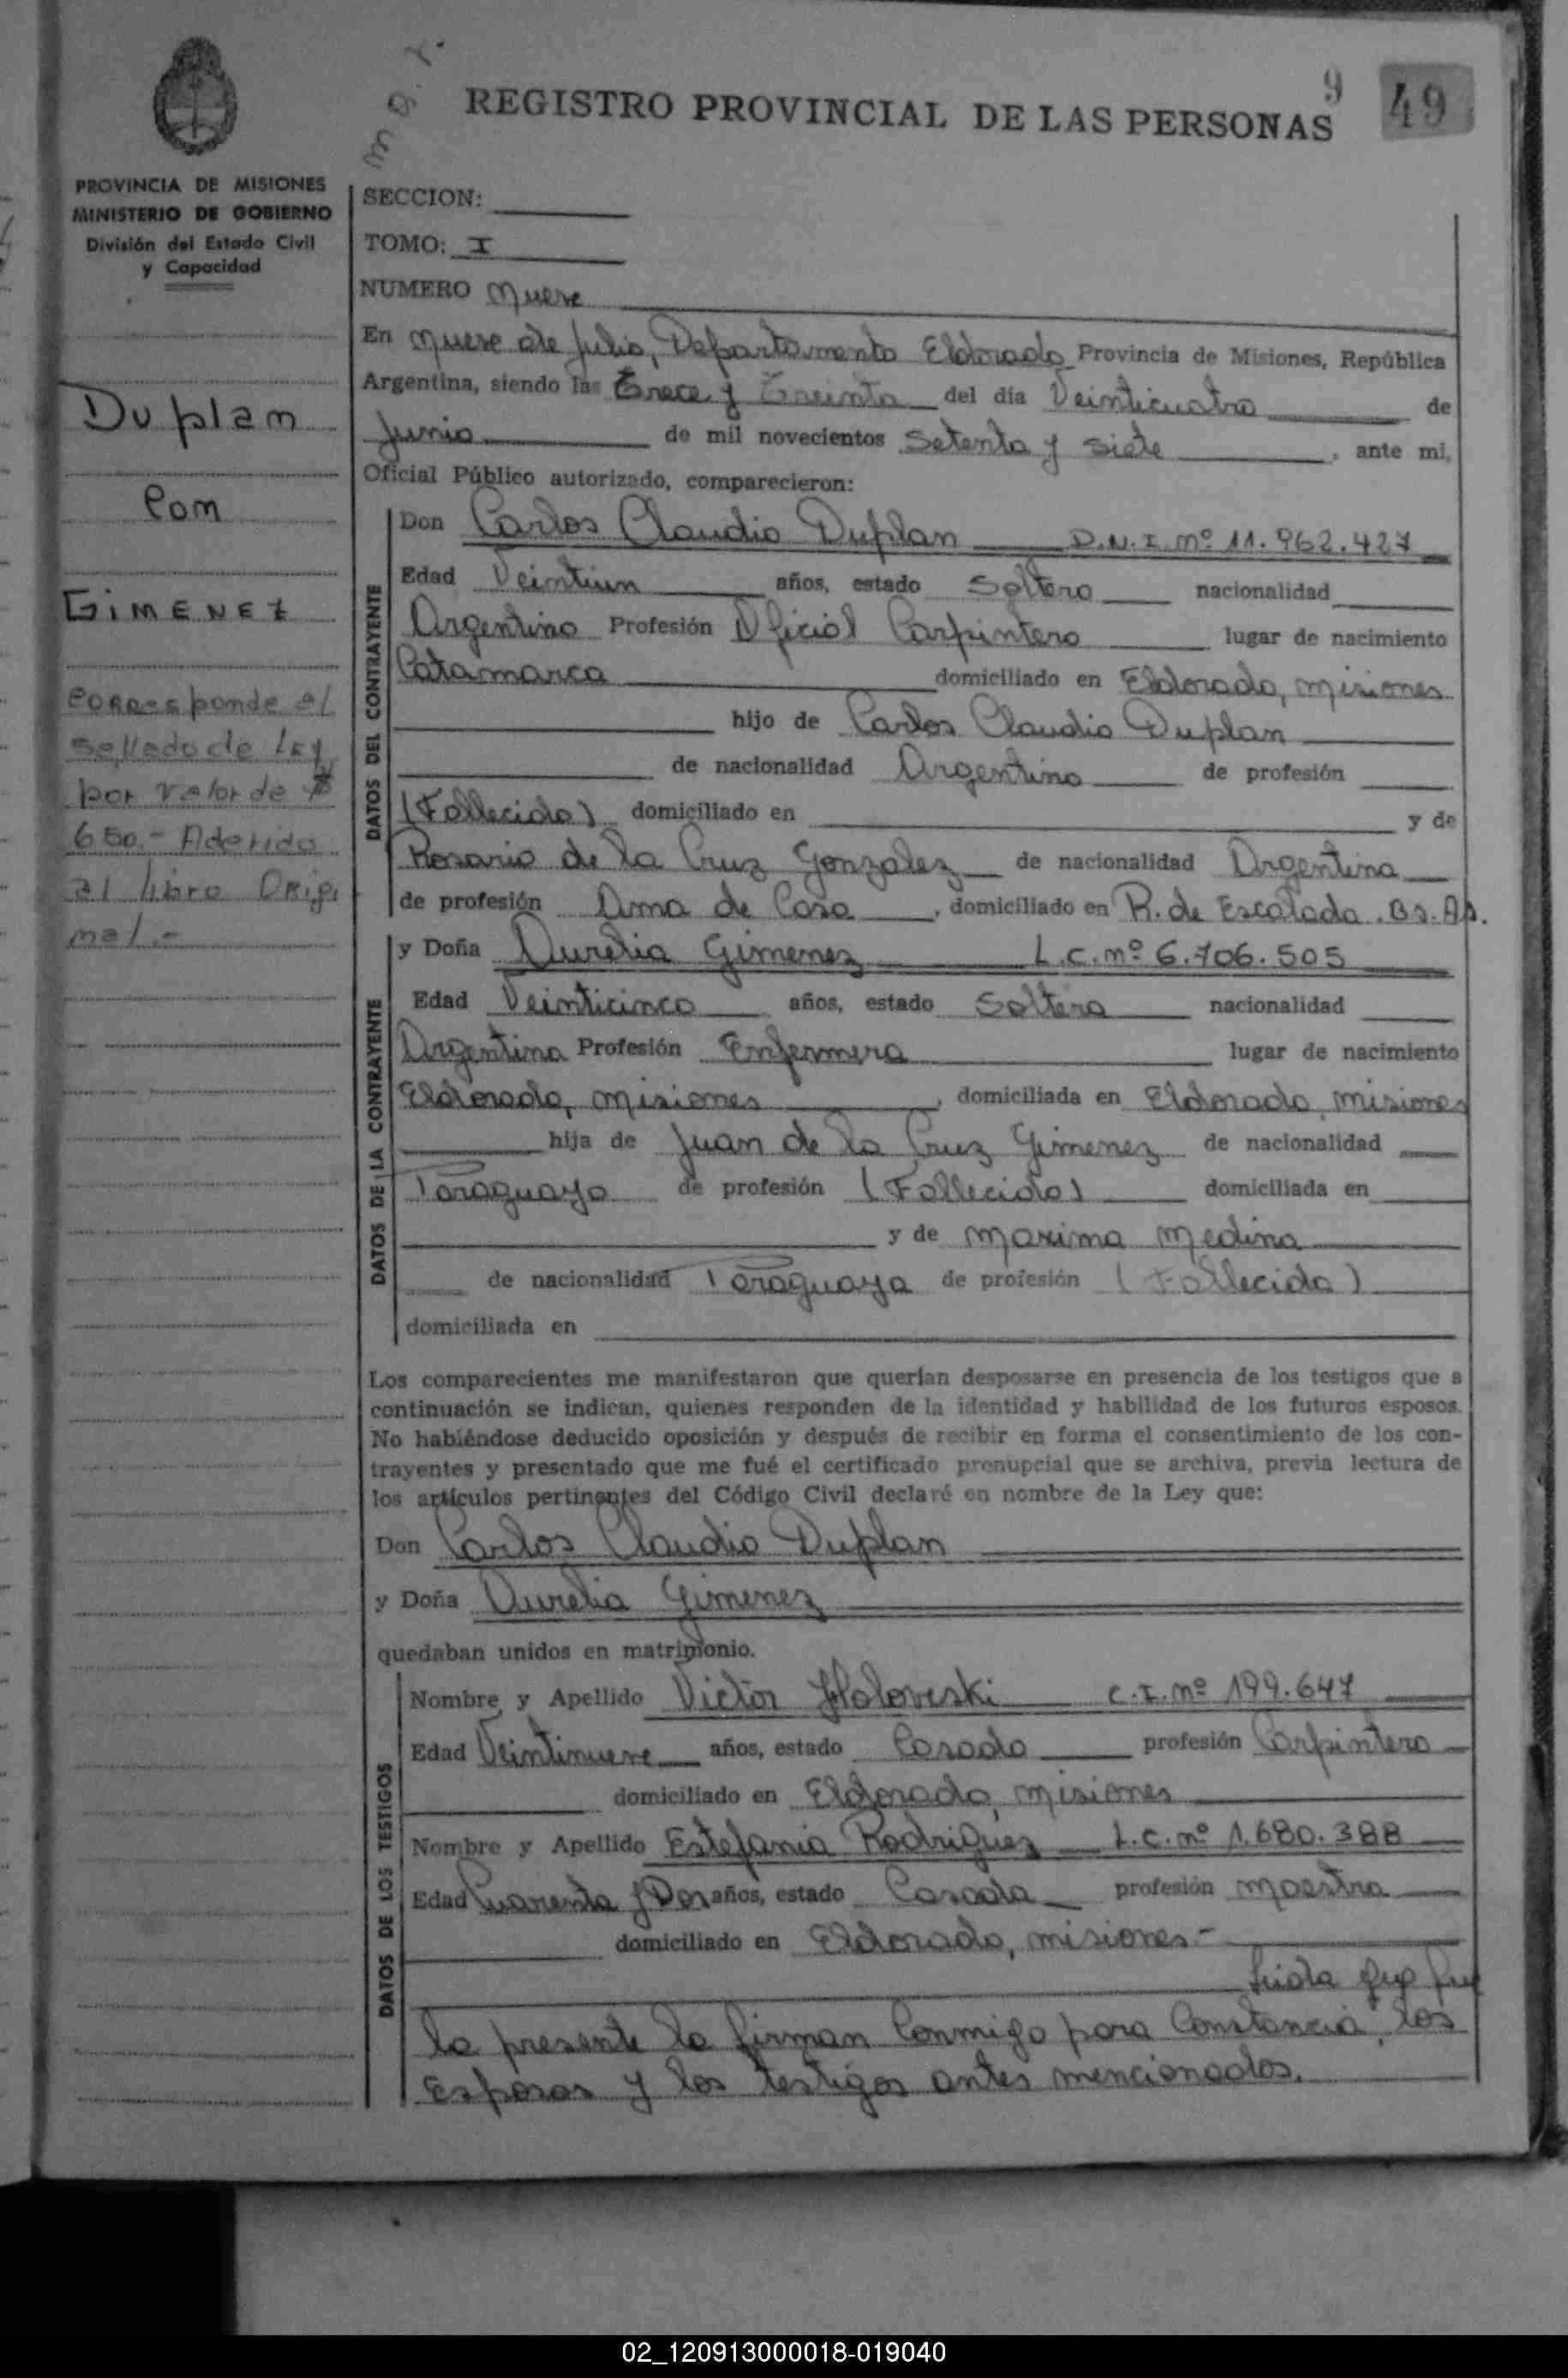 m a. r.
REGISTRO PROVINCIAL DE LAS PERSONAS
9
49
PROVINCIA DE MISIONES
MINISTERIO DE GOBIERNO
División del Estado Civil
y Capacidad
Duplan
Con
GIMENEZ
Corresponde al
sellado de Ley
por valor de $
650.- Aderido
al libro Origi
nal.-
SECCION:
TOMO: I
NUMERO Nueve
En Nueve de Julio, Departamento Eldorado Provincia de Misiones, República
Argentina, siendo las Trece y Treinta del día Veinticuatro de
Junio de mil novecientos Setenta y Siete, ante mi,
Oficial Público autorizado, comparecieron:
DATOS DEL CONTRAYENTE
Don Carlos Claudio Duplan D.N.I. nº 11.962.427
Edad Veintiun años, estado Soltero nacionalidad
Argentino Profesión Oficial Carpintero lugar de nacimiento
Catamarca domiciliado en Eldorado, Misiones
hijo de Carlos Claudio Duplan
de nacionalidad Argentino de profesión
(Fallecido) domiciliado en y de
Rosario de la Cruz Gonzalez de nacionalidad Argentina
de profesión Ama de Casa, domiciliado en R. de Escalada. Bs. As.
DATOS DE LA CONTRAYENTE
y Doña Aurelia Gimenez L.C. nº 6.706.505
Edad Veinticinco años, estado Soltera nacionalidad
Argentina Profesión Enfermera lugar de nacimiento
Eldorado, Misiones, domiciliada en Eldorado, Misiones
hija de Juan de la Cruz Gimenez de nacionalidad
Paraguayo de profesión (Fallecido) domiciliada en
y de Maxima Medina
de nacionalidad Paraguaya de profesión (Fallecida)
domiciliada en
Los comparecientes me manifestaron que querían desposarse en presencia de los testigos que a
continuación se indican, quienes responden de la identidad y habilidad de los futuros esposos.
No habiéndose deducido oposición y después de recibir en forma el consentimiento de los con-
trayentes y presentado que me fué el certificado prenupcial que se archiva, previa lectura de
los artículos pertinentes del Código Civil declaré en nombre de la Ley que:
Don Carlos Claudio Duplan
y Doña Aurelia Gimenez
quedaban unidos en matrimonio.
DATOS DE LOS TESTIGOS
Nombre y Apellido Victor Holoveski C.I. nº 199.647
Edad Veintinueve años, estado Casado profesión Carpintero
domiciliado en Eldorado, Misiones
Nombre y Apellido Estefania Rodriguez L.C. nº 1.680.388
Edad Cuarenta y Dos años, estado Casada profesión Maestra
domiciliado en Eldorado, Misiones.-
Leida que fue
la presente la firman Conmigo para Constancia, los
Esposos y los testigos antes mencionados.
02_120913000018-019040